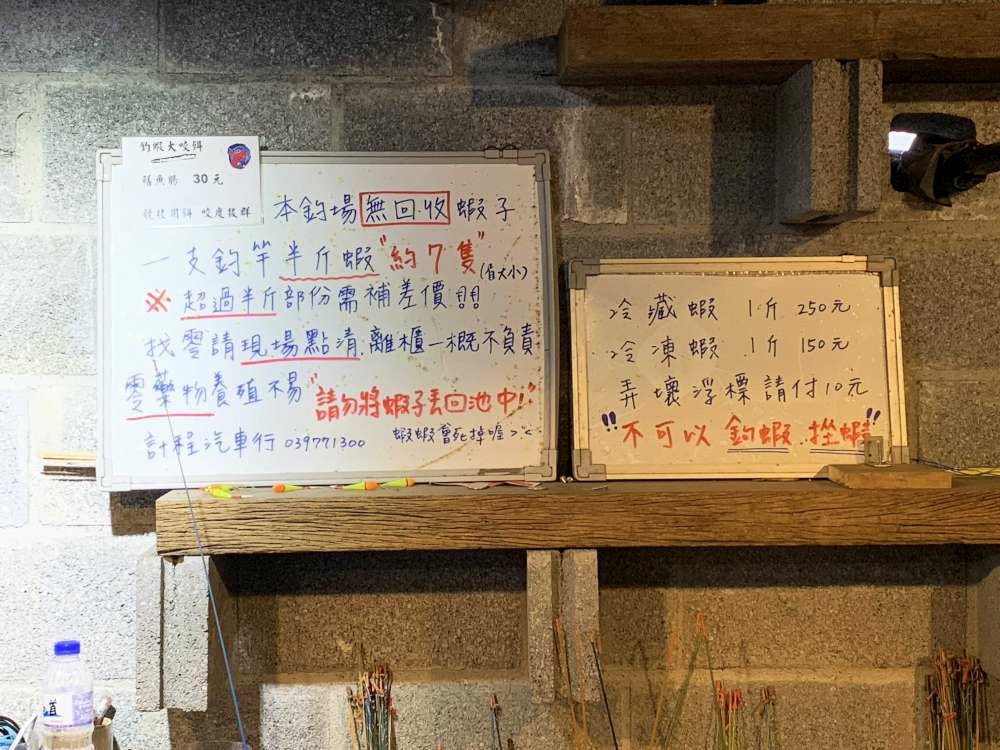 釣蝦大咬餌
雞魚肝 30元
咬度拔群
本釣場無回收蝦子
一支釣竿半斤蝦"約7隻"(看大小)
※超過半斤部份需補差價!!!
找零請現場點清.離櫃一概不負責
零藥物養殖不易"請勿將蝦子丟回池中!"
計程汽車行 039771300 蝦蝦會死掉喔>"<
冷藏蝦 1斤 250元
冷凍蝦 1斤 150元
弄壞浮標請付10元
"不可以 釣蝦.挫蝦"